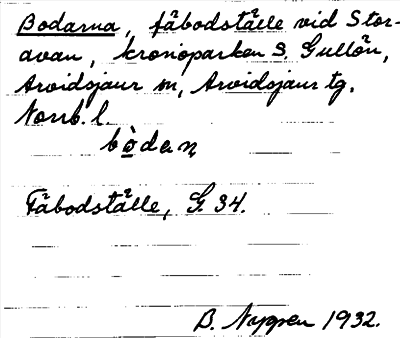 Bodarna, fäbodställe vid Stor-
avan, kronoparken S. Gullön,
Arvidsjaur sn, Arvidsjaur tg.
Norrb. l.
bòdaṇ
Fäbodställe, G. 34.
B. Nygren 1932.